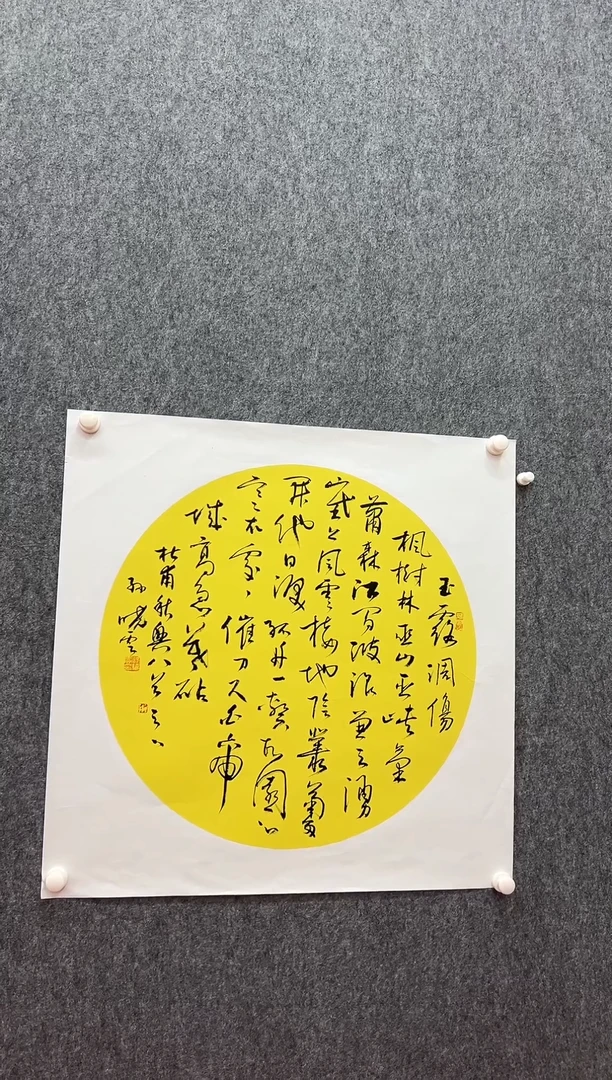 玉露凋傷
楓樹林巫山巫峽氣
蕭森江间波浪兼天湧
塞上風雲接地陰叢菊兩
開他日淚孤舟一繫故園心
寒衣處々催刀尺白帝
城高急暮砧
杜甫秋興八首之一
孫曉雲